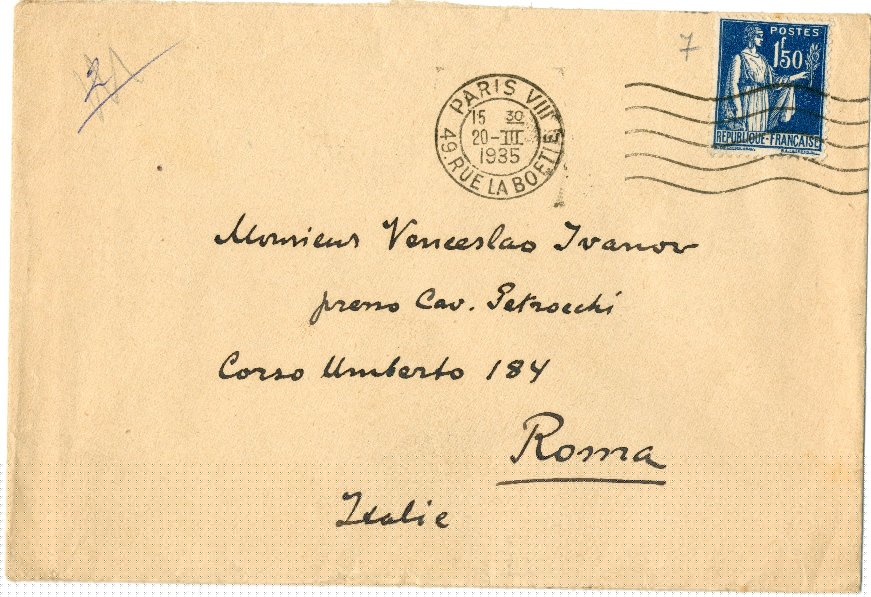 2
7
POSTES
1f50
REPUBLIQUE-FRANÇAISE
PARIS VIII
15 30
20-III
1935
49. RUE LA BOETIE
Monsieur Venceslao Ivanov
presso Cav. Petrocchi
Corso Umberto 184
Roma
Italie